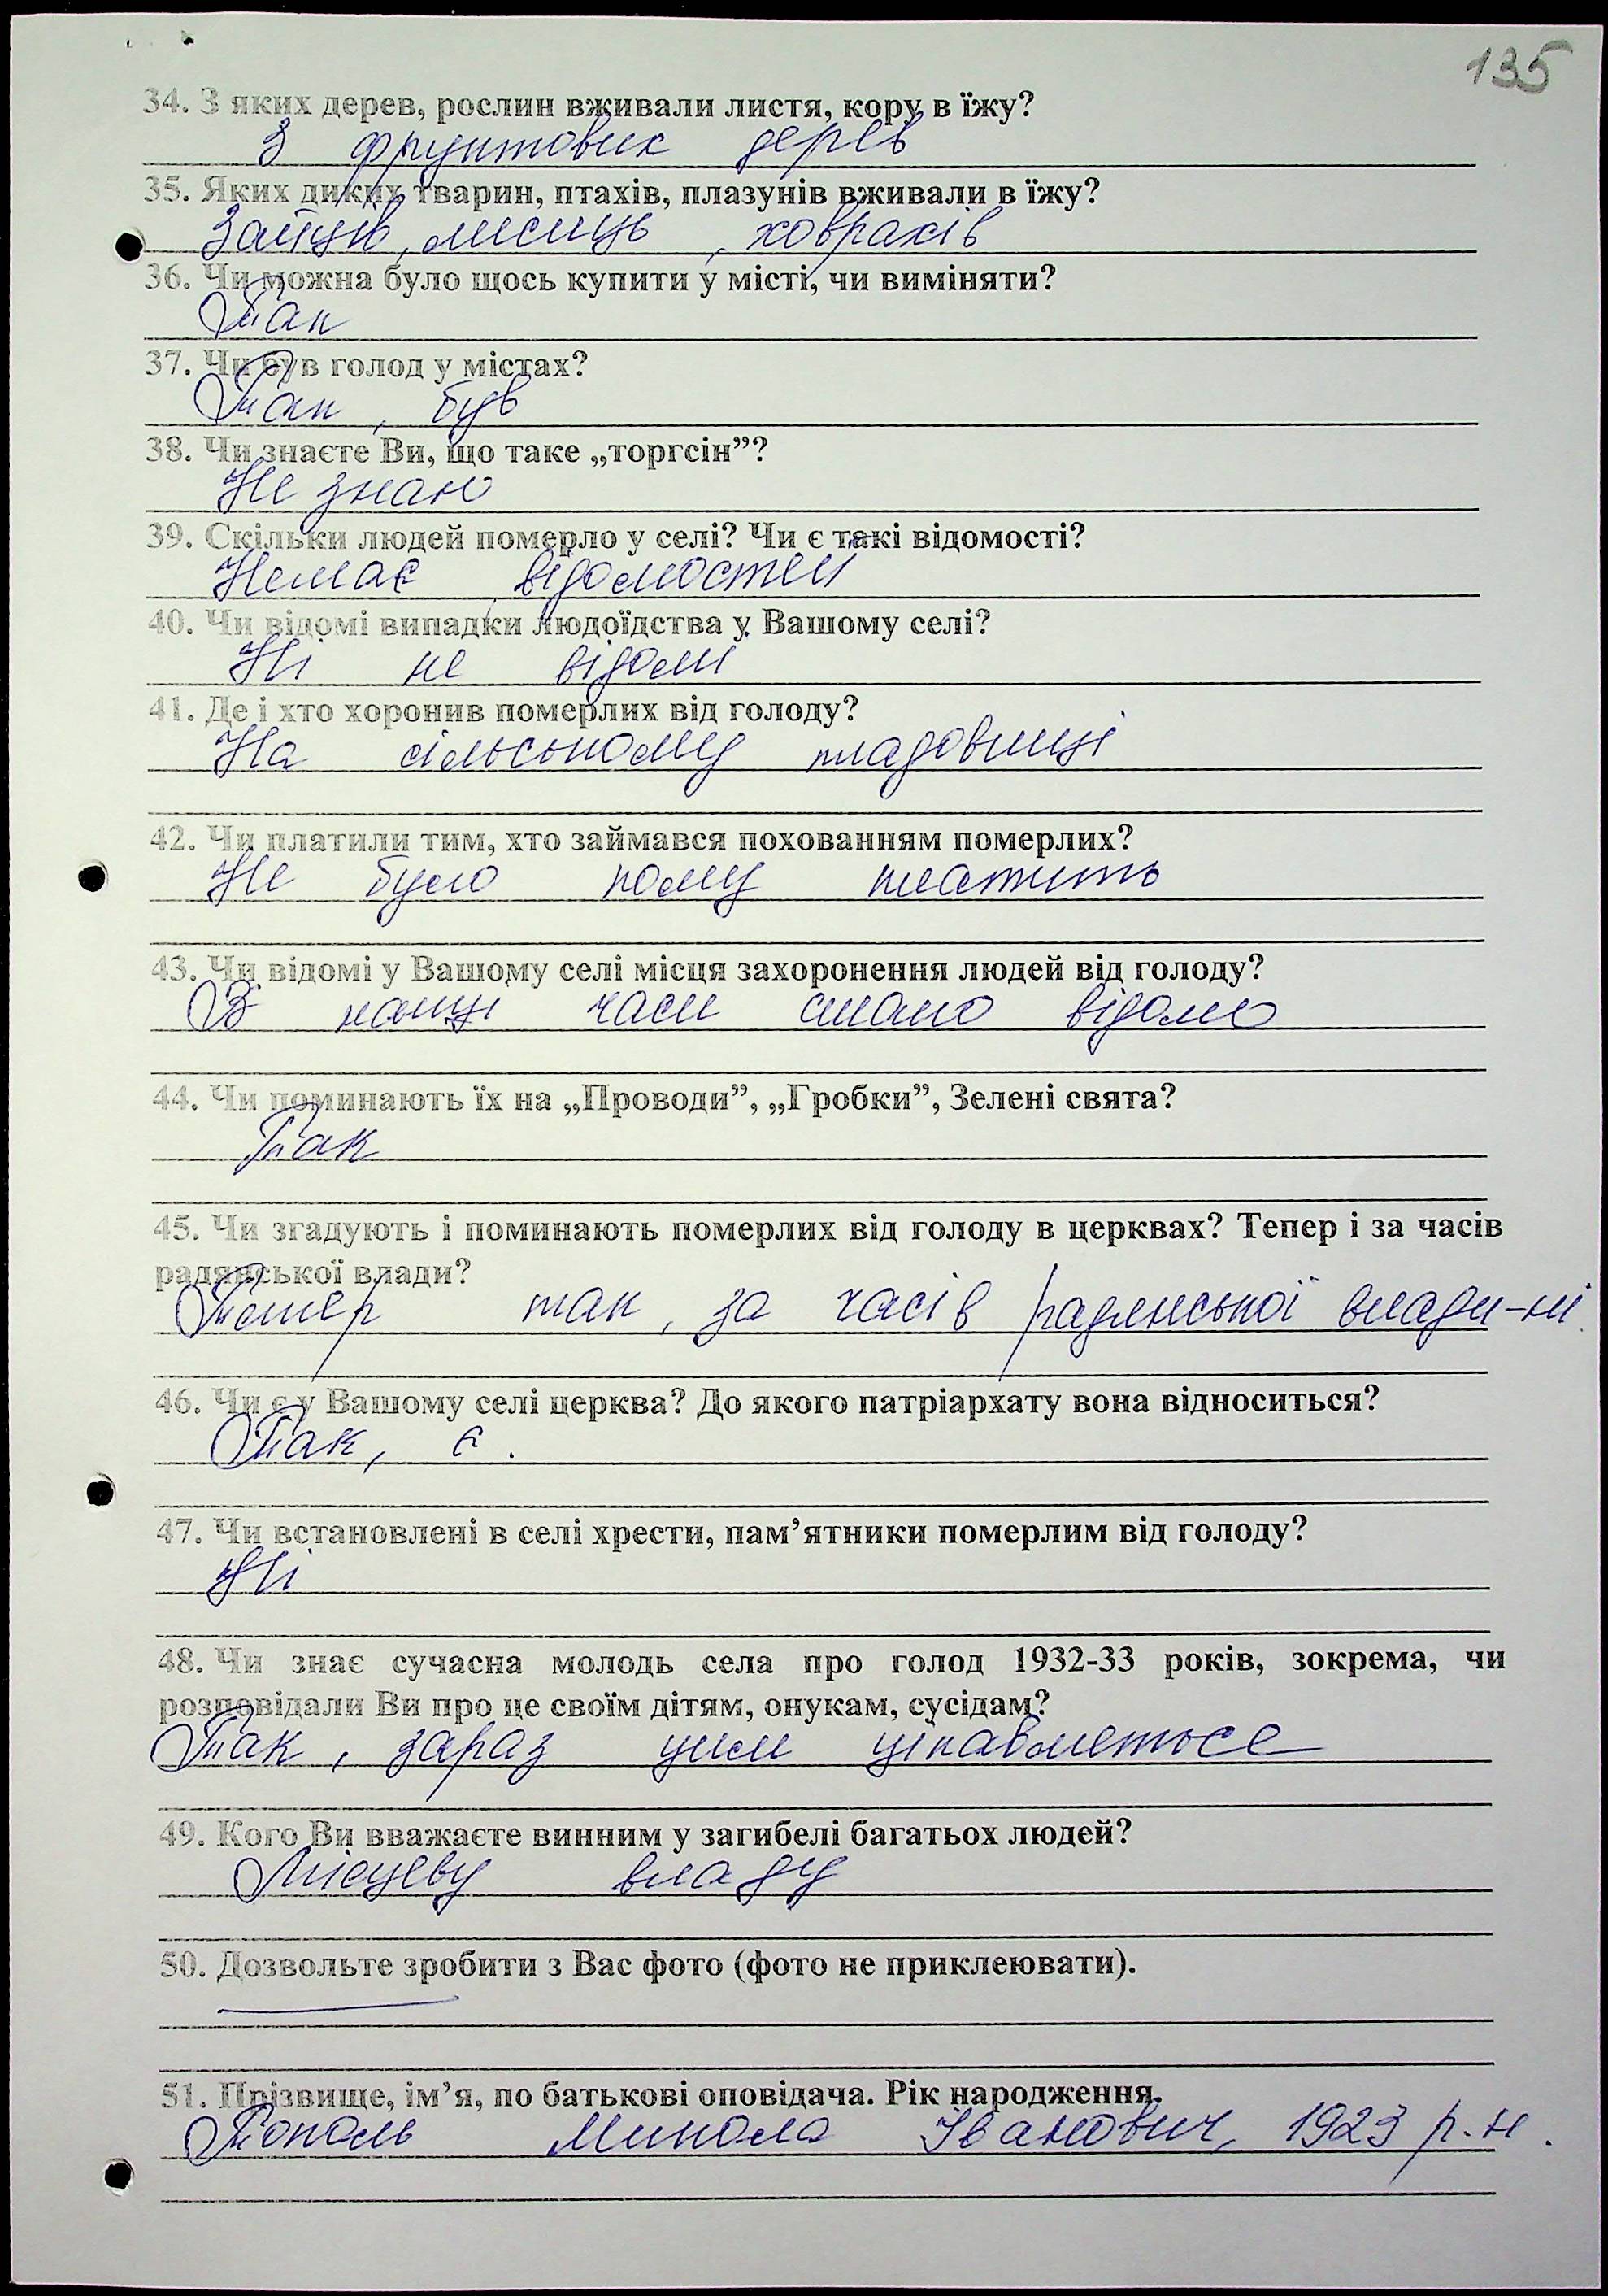 135
34. З яких дерев, рослин вживали листя, кору в їжу?
З фруктових дерев
35. Яких диких тварин, птахів, плазунів вживали в їжу?
Зайців, лисиць, ховрахів
36. Чи можна було щось купити у місті, чи виміняти?
Так
37. Чи був голод у містах?
Так, був
38. Чи знаєте Ви, що таке „торгсін”?
Не знаю
39. Скільки людей померло у селі? Чи є такі відомості?
Немає відомостей
40. Чи відомі випадки людоїдства у Вашому селі?
Ні не відомі
41. Де і хто хоронив померлих від голоду?
На сільському кладовищі
42. Чи платили тим, хто займався похованням померлих?
Не було кому платить
43. Чи відомі у Вашому селі місця захоронення людей від голоду?
В наші часи стало відомо
44. Чи поминають їх на „Проводи”, „Гробки”, Зелені свята?
Так
45. Чи згадують і поминають померлих від голоду в церквах? Тепер і за часів
радянської влади?
Тепер так, за часів радянської влади-ні.
46. Чи є у Вашому селі церква? До якого патріархату вона відноситься?
Так, є.
47. Чи встановлені в селі хрести, пам’ятники померлим від голоду?
Ні
48. Чи знає сучасна молодь села про голод 1932-33 років, зокрема, чи
розповідали Ви про це своїм дітям, онукам, сусідам?
Так, зараз цим цікавляться
49. Кого Ви вважаєте винним у загибелі багатьох людей?
Місцеву владу
50. Дозвольте зробити з Вас фото (фото не приклеювати).
51. Прізвище, ім’я, по батькові оповідача. Рік народження.
Тополь Микола Іванович, 1923 р.н.